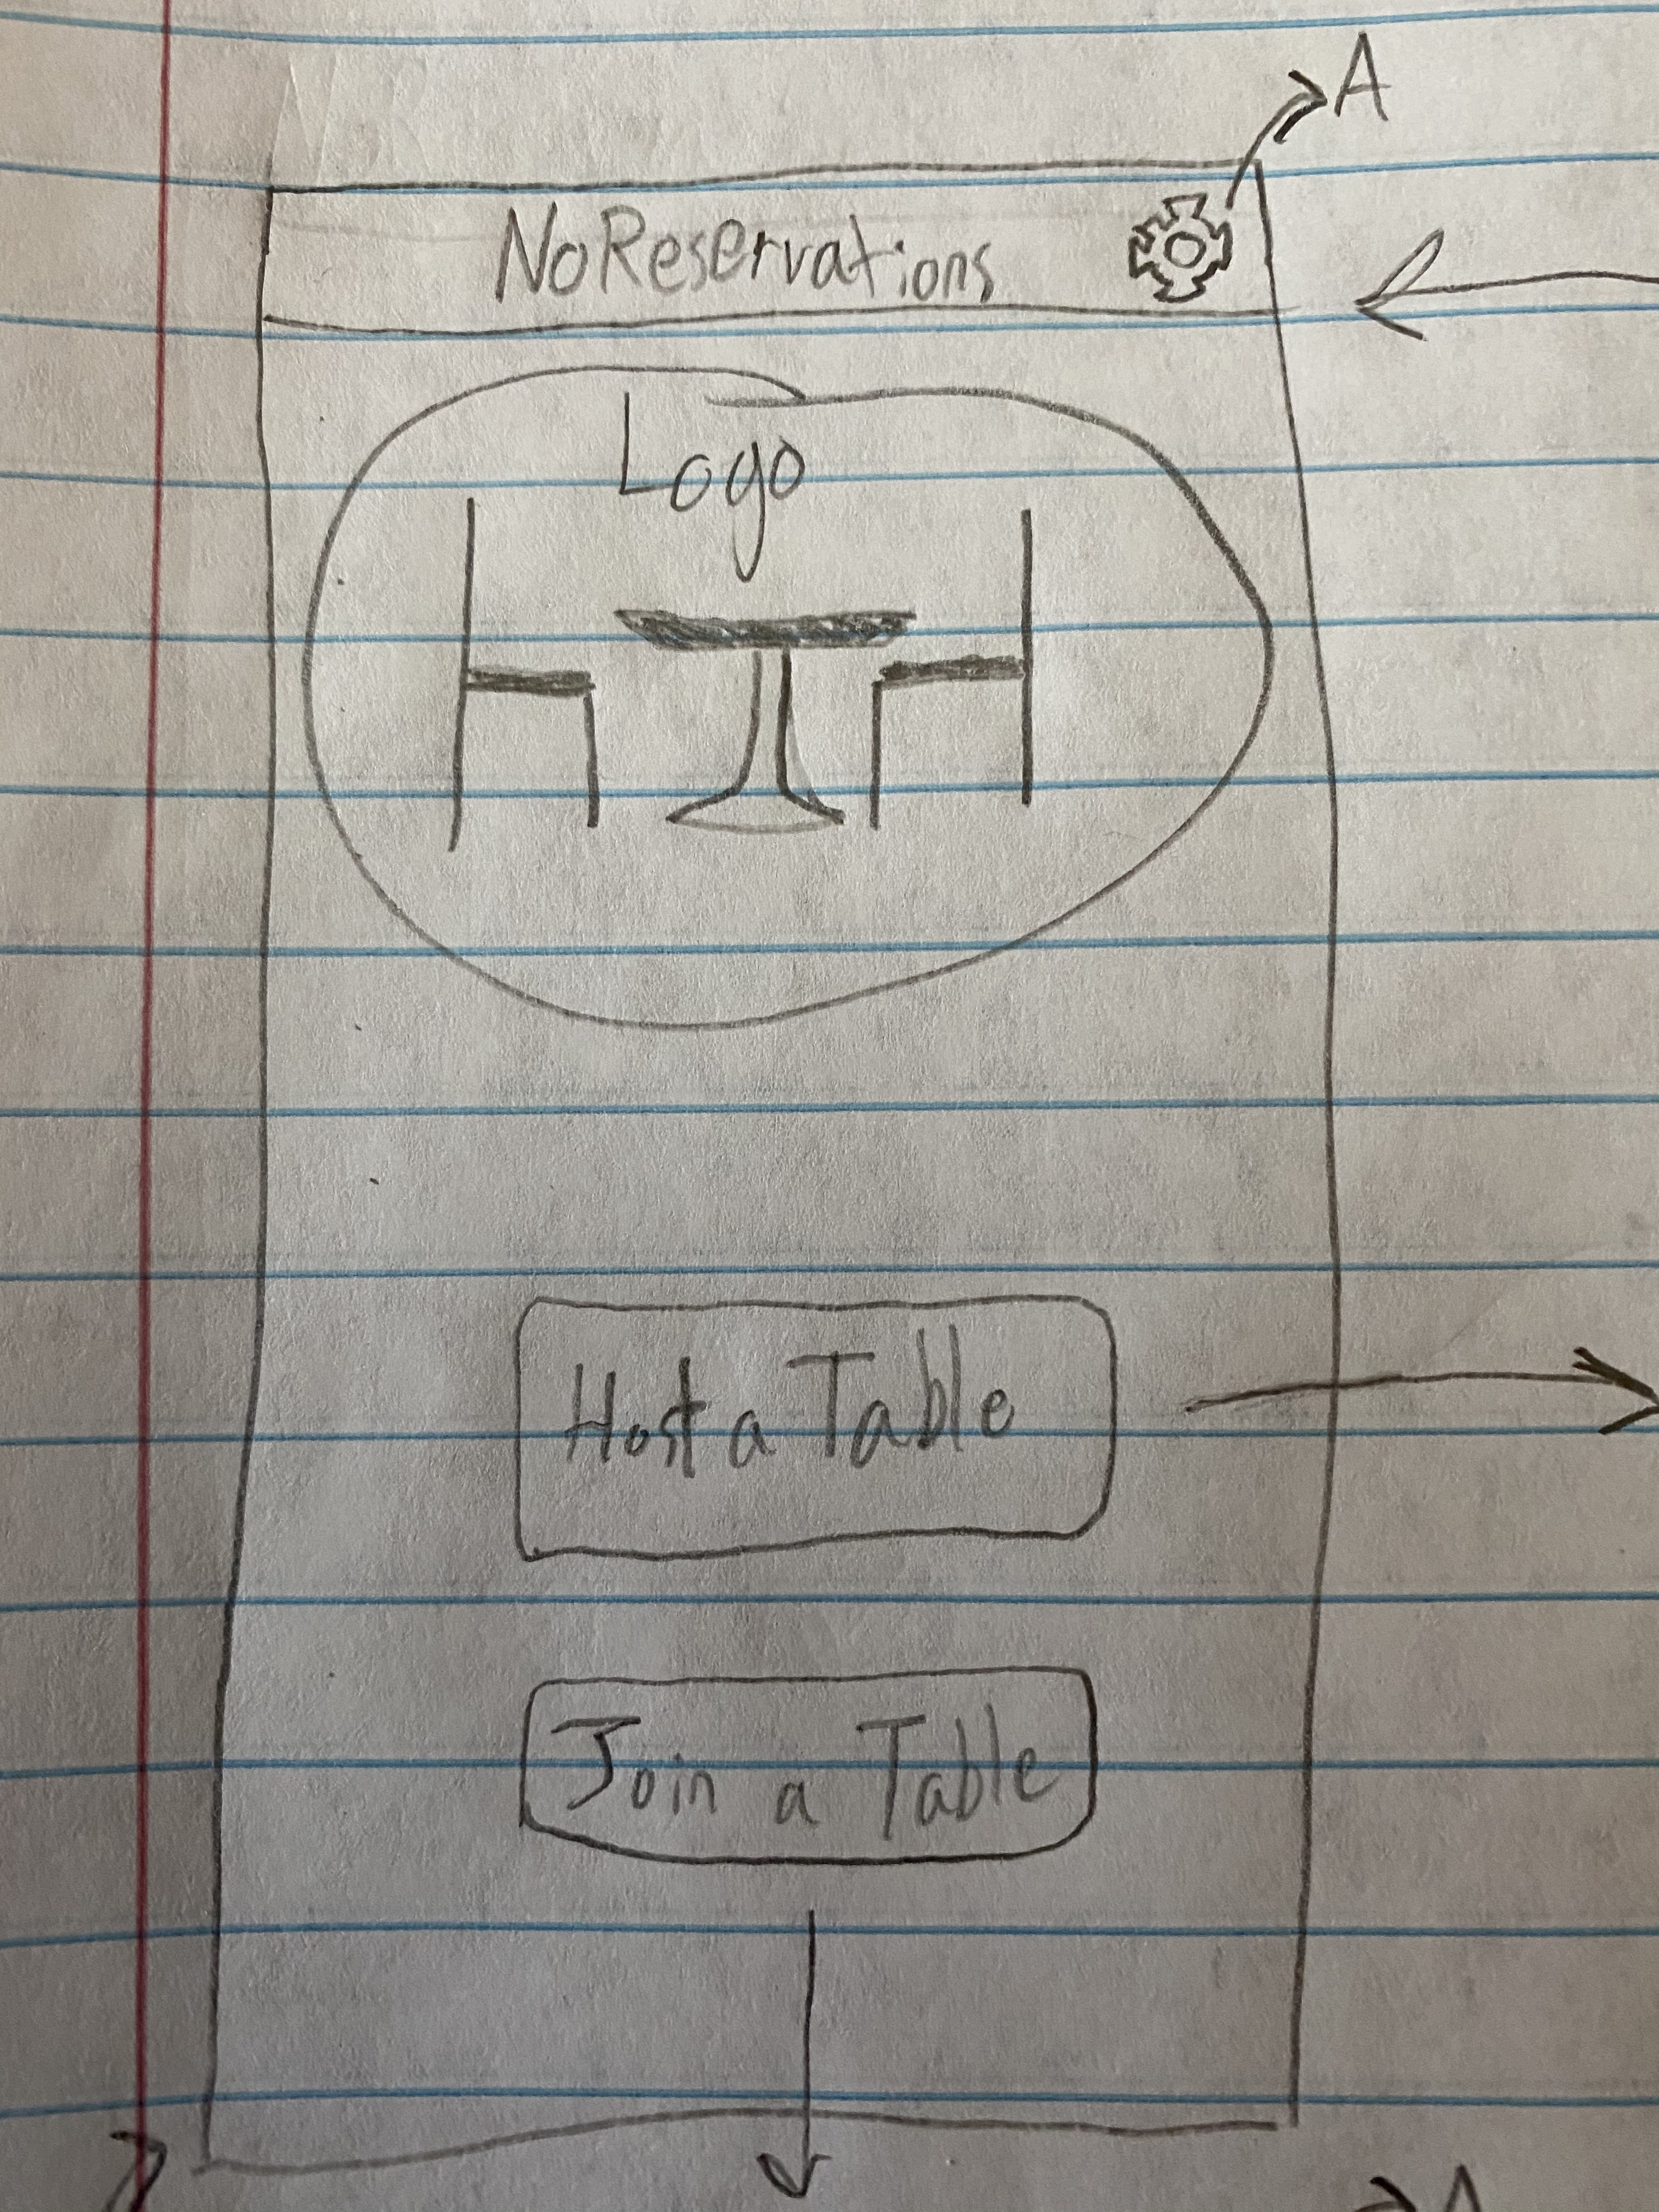 A
NoReservations
Logo
Host a Table
Join a Table
A